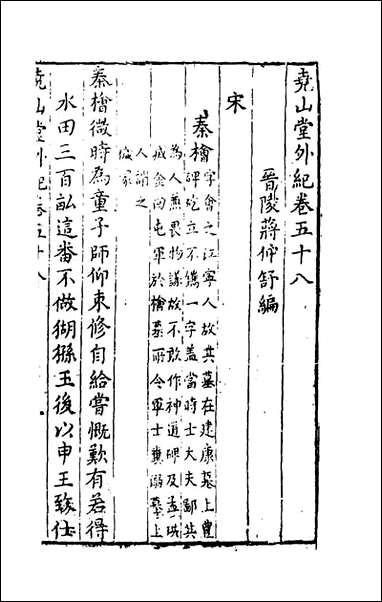 堯山堂外紀卷五十八
晉陵蔣仲舒編
宋
秦檜
字會之江寧人故其墓在建康墓上豐
碑屹立不鐫一字蓋當時士大夫鄙其
為人兼畏物議故不敢作神道碑及孟珙
滅金回屯軍於檜墓所令軍士糞溺墓上
人謂之
穢冢
秦檜微時為童子師仰束修自給嘗慨歎有若得
水田三百畝這番不做猢猻王後以申王致仕
堯山堂外紀卷五十八